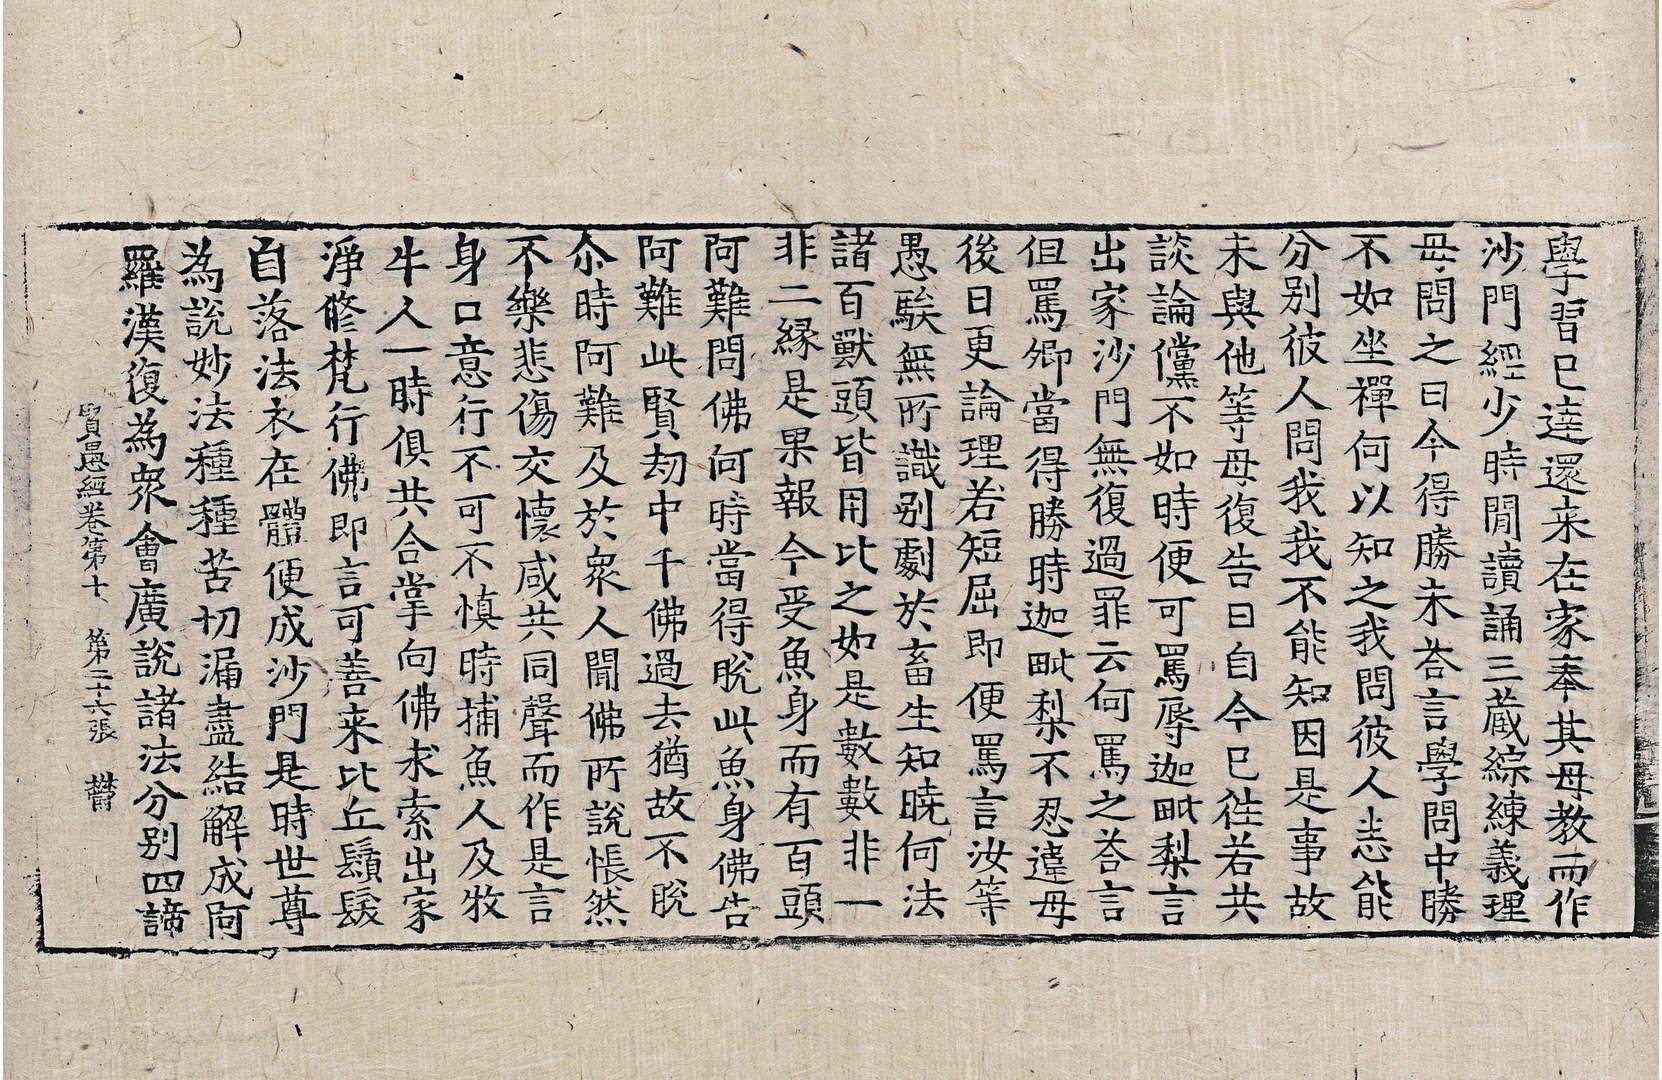 學習已達還来在家奉其母教而作
沙門經少時閒讀誦三藏綜練義理
母問之曰今得勝未荅言學問中勝
不如坐禪何以知之我問彼人悉能
分別彼人問我我不能知因是事故
未與他等母復告曰自今已徃若共
談論儻不如時便可罵辱迦毗梨言
出家沙門無復過罪云何罵之荅言
但罵卿當得勝時迦毗梨不忍違母
後日更論理若短屈即便罵言汝等
愚騃無所識別劇於畜生知曉何法
諸百獸頭皆用比之如是數數非一
非二縁是果報今受魚身而有百頭
阿難問佛何時當得脫此魚身佛告
阿難此賢劫中千佛過去猶故不脫
尒時阿難及於衆人聞佛所說悵然
不樂悲傷交懷咸共同聲而作是言
身口意行不可不慎時捕魚人及牧
牛人一時俱共合掌向佛求索出家
淨修梵行佛即言可善来比丘鬚髮
自落法衣在體便成沙門是時世尊
為說妙法種種苦切漏盡結解成阿
羅漢復為衆會廣說諸法分別四諦
賢愚經卷第十 第二十六張 欝